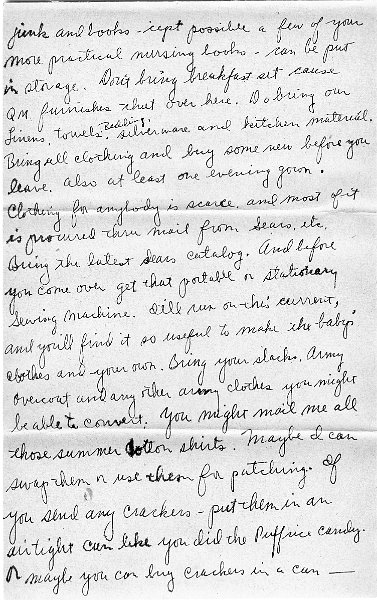 junk and books - 'cept possible a few of your
more practical nursing books - can be put
in storage. Don't bring breakfast set cause
QM furnishes that over here. Do bring our
Linens, towels, Bedding!, silverware and kitchen material.
Bring all clothing and buy some new before you
leave. Also at least one evening gown.
Clothing for anybody is scarce and most of it
is procured thru mail from Sears, etc.
Bring the latest Sears catalog. And before
you come over get that portable or stationary
Sewing machine. It'll run on this current,
and you'll find it so useful to make the baby's
clothes and your own. Bring your slacks, Army
overcoat and any other army clothes you might
be able to convert. You might mail me all
those summer cotton shirts. Maybe I can
swap them or use them for patching. If
you send any crackers - put them in an
airtight can like you did the Puffrice candy.
Or maybe you can buy crackers in a can —